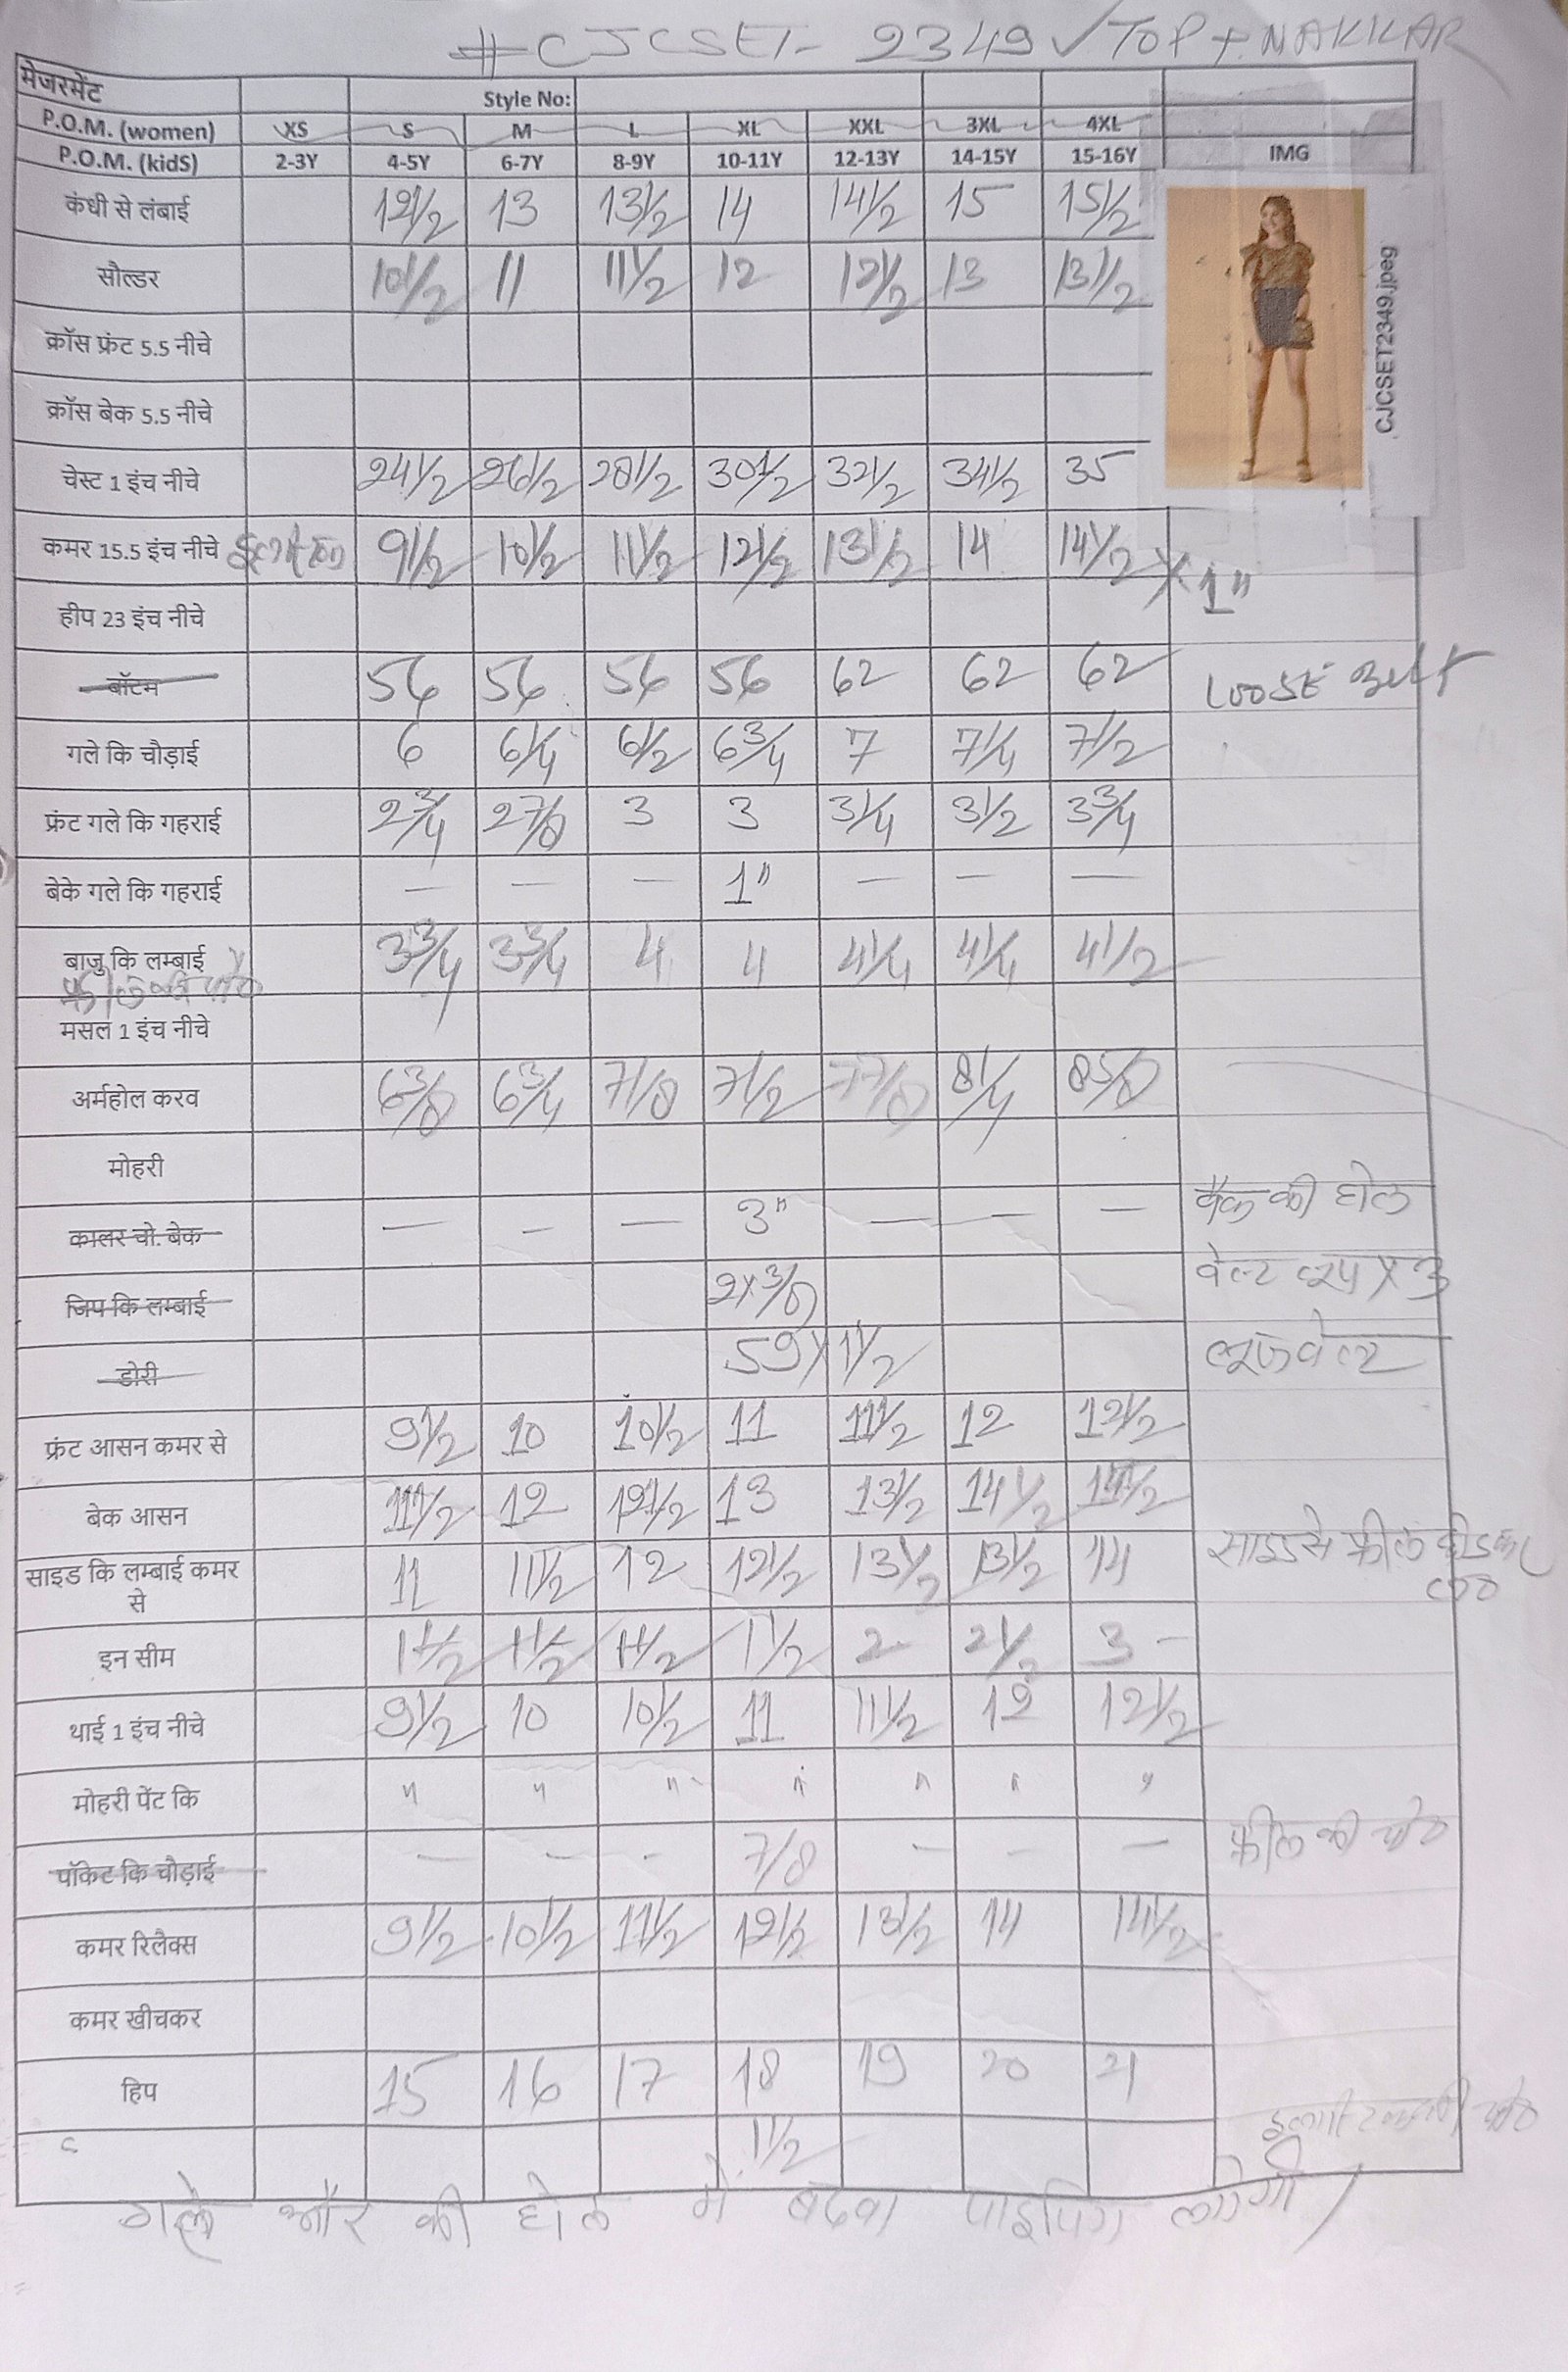 #CJCSET- 2349 ✓ TOP + NAKKAR
मेजरमेंट Style No:
P.O.M. (women) XS S M L XL XXL 3XL 4XL
P.O.M. (kidS) 2-3Y 4-5Y 6-7Y 8-9Y 10-11Y 12-13Y 14-15Y 15-16Y IMG
कंधी से लंबाई 12 1/2 13 13 1/2 14 14 1/2 15 15 1/2
CJCSET2349.jpeg
सौल्डर 10 1/2 11 11 1/2 12 12 1/2 13 13 1/2
क्रॉस फ्रंट 5.5 नीचे
क्रॉस बेक 5.5 नीचे
चेस्ट 1 इंच नीचे 24 1/2 26 1/2 28 1/2 30 1/2 32 1/2 34 1/2 35
कमर 15.5 इंच नीचे 9 1/2 10 1/2 11 1/2 12 1/2 13 1/2 14 14 1/2 X 1"
हीप 23 इंच नीचे
बॉटम 56 56 56 56 62 62 62 LOOSE BELT
गले कि चौड़ाई 6 6 1/4 6 1/2 6 3/4 7 7 1/4 7 1/2
फ्रंट गले कि गहराई 2 3/4 2 7/8 3 3 3 1/4 3 1/2 3 3/4
बेके गले कि गहराई — — — 1" — — —
बाजु कि लम्बाई 3 3/4 3 3/4 4 4 4 1/4 4 1/4 4 1/2
मसल 1 इंच नीचे
अर्महोल करव 6 3/8 6 3/4 7 1/8 7 1/2 7 7/8 8 1/4 8 5/8
मोहरी
कालर चो. बेक — — — 3" — — — बैक की होल
जिप कि लम्बाई 2 x 3/8 वेल्ट लूप X 3
डोरी 59 X 1 1/2 लूज वेल्ट
फ्रंट आसन कमर से 9 1/2 10 10 1/2 11 11 1/2 12 12 1/2
बेक आसन 11 1/2 12 12 1/2 13 13 1/2 14 1/2 14 1/2
साइड कि लम्बाई कमर से 11 11 1/2 12 12 1/2 13 1/2 13 1/2 14 साइड से फ्रील
इन सीम 1 1/2 1 1/2 1 1/2 1 1/2 2 2 1/2 3
थाई 1 इंच नीचे 9 1/2 10 10 1/2 11 11 1/2 12 12 1/2
मोहरी पेंट कि " " " " " " "
पॉकेट कि चौड़ाई — — - 7/8 — - — फ्रील की चौ०
कमर रिलैक्स 9 1/2 10 1/2 11 1/2 12 1/2 13 1/2 14 14 1/2
कमर खीचकर
हिप 15 16 17 18 19 20 21
1 1/2
गले और की होल में बदवा पाइपिंग लगेगी